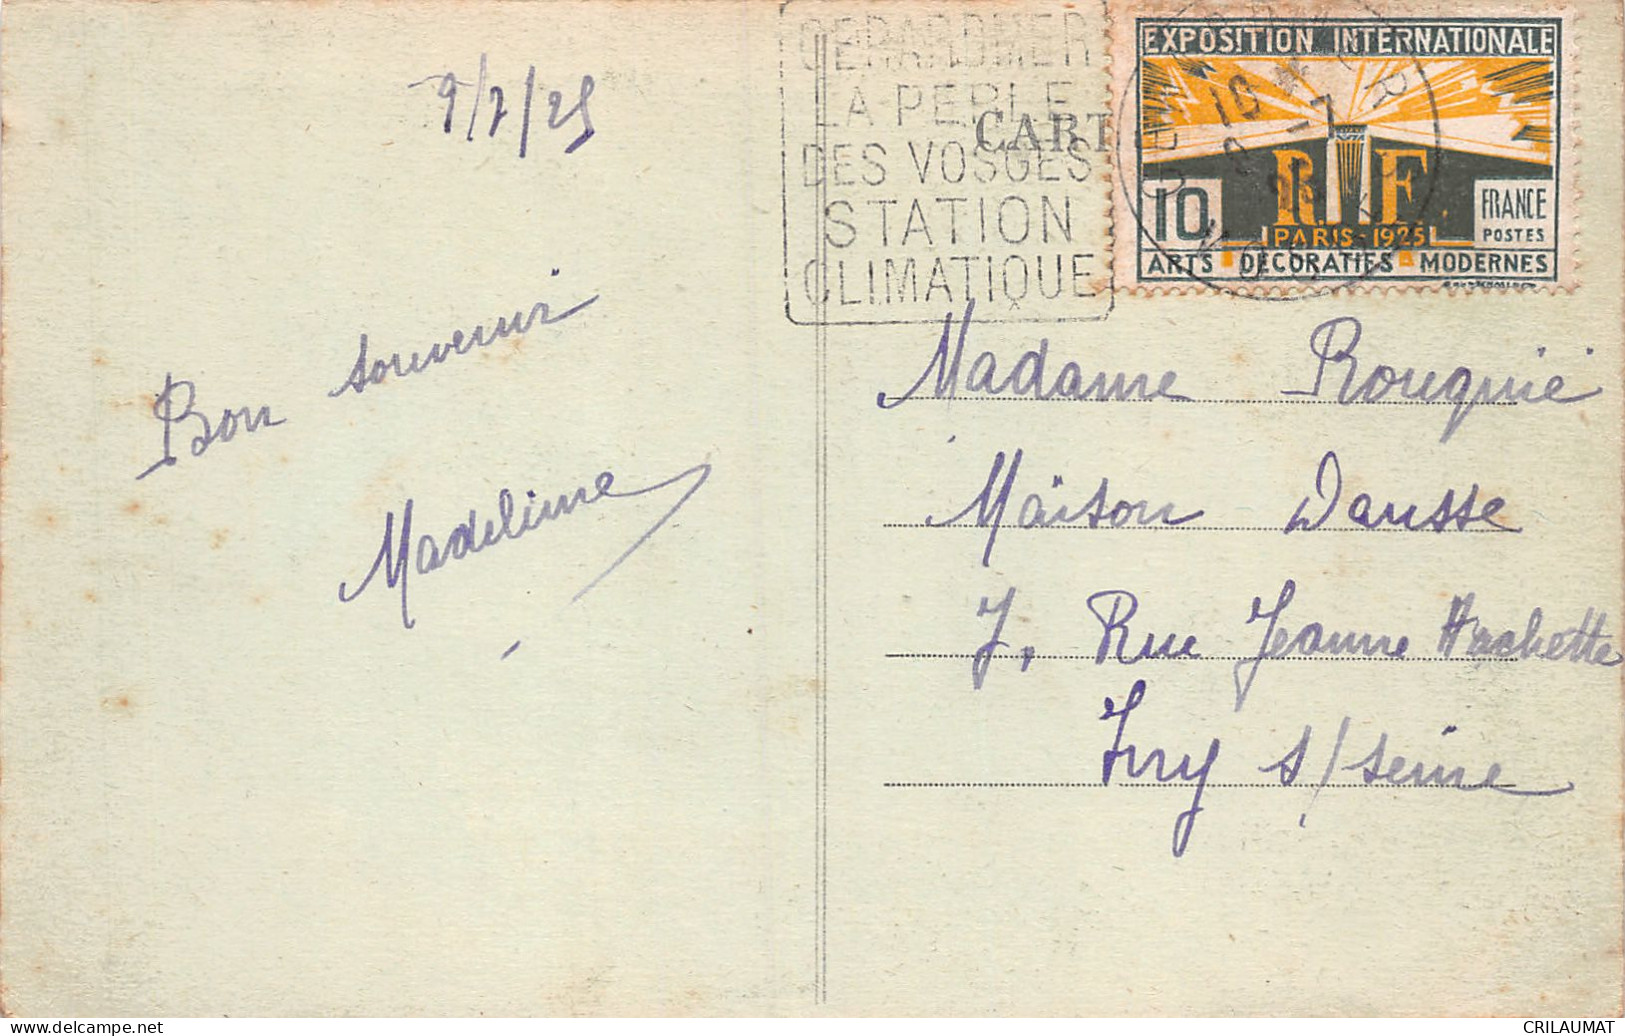 9/7/25
Bon souvenir
Madeleine
GERARDMER
LA PERLE
DES VOSGES
STATION
CLIMATIQUE
CART
EXPOSITION INTERNATIONALE
R F
10
FRANCE
POSTES
PARIS-1925
ARTS DECORATIFS MODERNES
10
9 -7
25
Madame Rouquié
Maison Dausse
7, Rue Jeanne Hachette
Ivry s/seine
CRILAUMAT